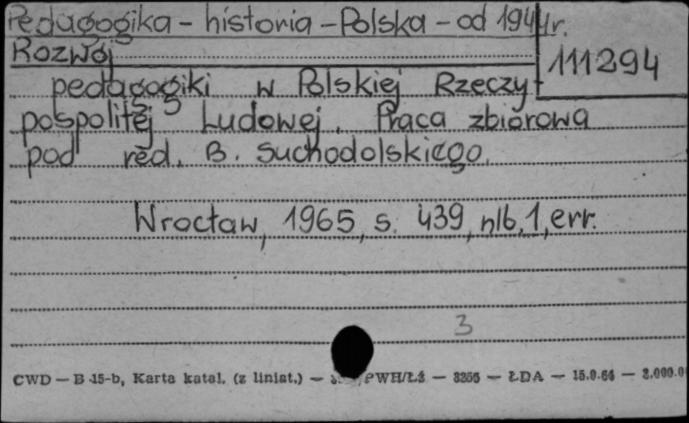 Pedagogika - historia - Polska - od 1944r.
Rozwój
111294
pedagogiki w Polskiej Rzeczy-
pospolitej Ludowej. Praca zbiorowa
pod red. B. Suchodolskiego.
Wrocław, 1965, s. 439, nlb. 1, err.
3
CWD — B-15-b, Karta katal. (z liniat.) — PWH/Łź — 3256 — ŁDA — 15.9.64 —